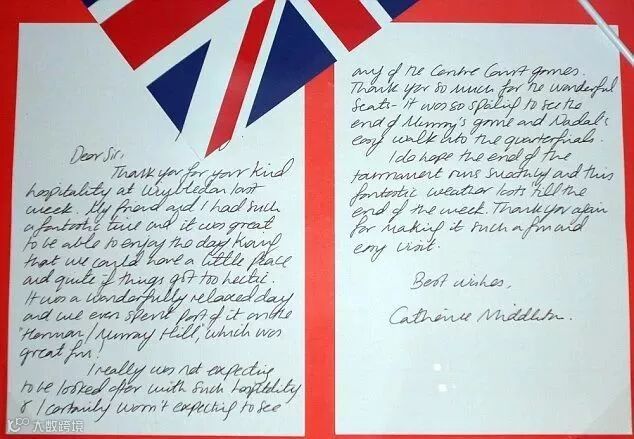 Dear Sir,
Thank you for your kind
hospitality at Wymbledon last
week. My friend and I had such
a fantastic time and it was great
to be able to enjoy the day knowing
that we could have a little peace
and quite if things got too hectic.
It was a wonderfully relaxed day
and we even spent part of it on the
"Henman / Murray Hill", which was
great fun!
I really was not expecting
to be looked after with such hospitality
& I certainly wasn't expecting to see
any of the Centre Court games.
Thank you so much for the wonderful
seats - it was so spoiling to see the
end of Murray's game and Nadal's
easy walk into the quarterfinals.
I do hope the end of the
tournament runs smoothly and this
fantastic weather lasts till the
end of the week. Thank you again
for making it such a fun and
easy visit.
Best wishes,
Catherine Middleton.
大数跨境